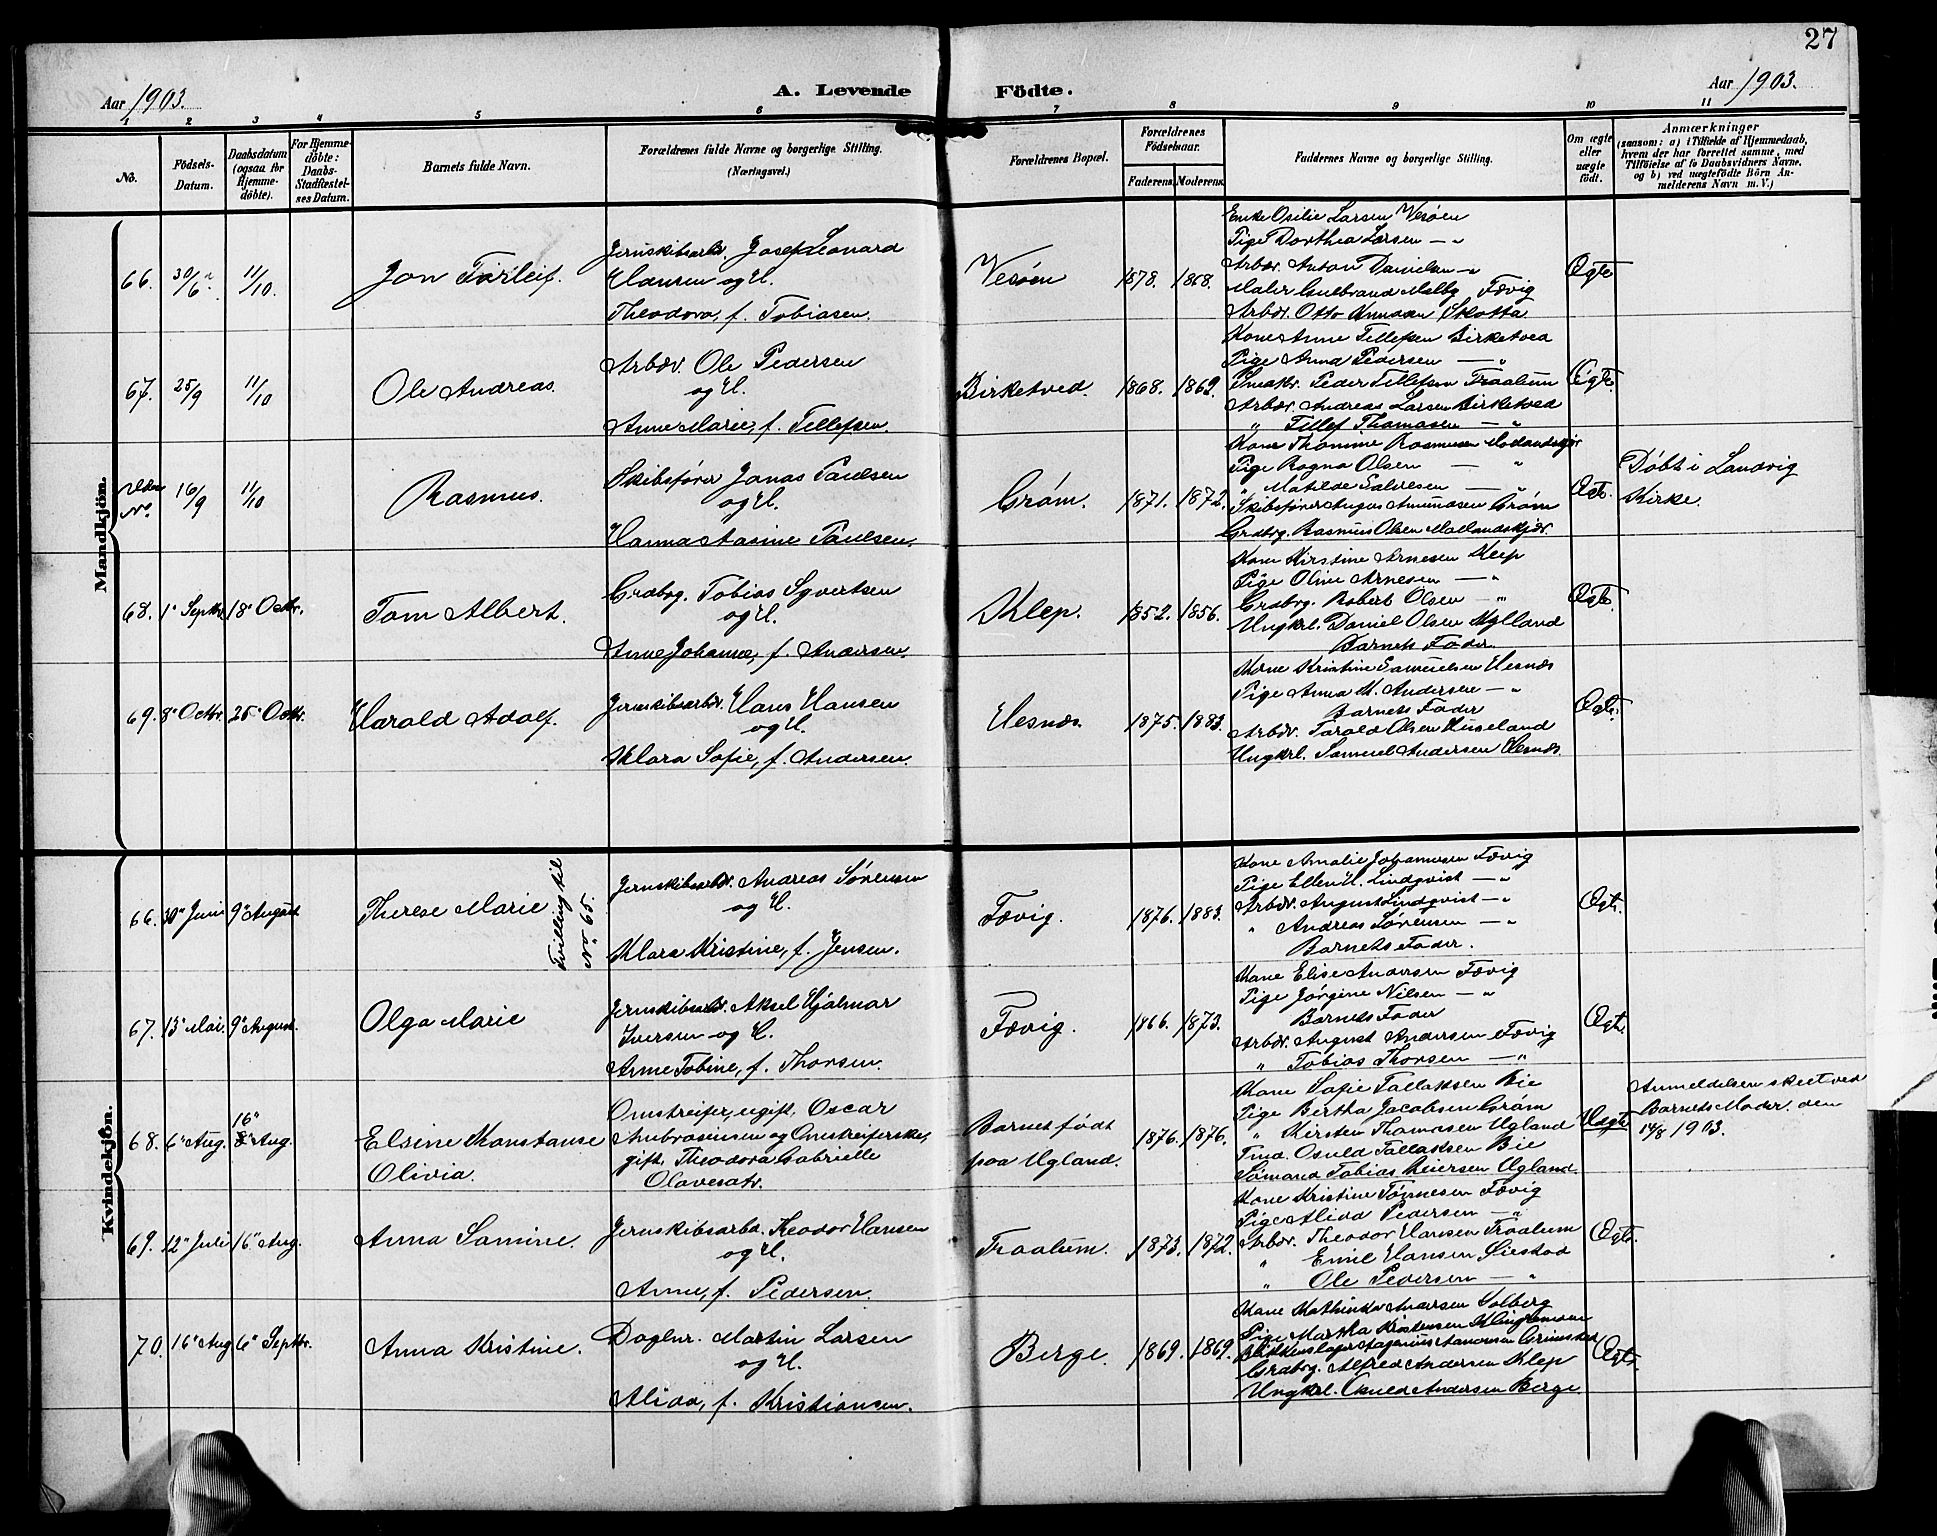 27
Aar 1903.
A. Levende Födte.
Aar 1903.
1 2 3 4 5 6 7 8 9 10 11
No.
Födsels-Datum.
Daabsdatum (ogsaa for Hjemme-döbte).
For Hjemme-döbte: Daabs-Stadfæstel-ses Datum.
Barnets fulde Navn.
Forældrenes fulde Navne og borgerlige Stilling.
(Næringsvei.)
Forældrenes Bopæl.
Forældrenes Födselsaar.
Faderens. Moderens.
Faddernes Navne og borgerlige Stilling.
Om ægte eller uægte födt.
Anmærkninger
(saasom: a) i Tilfælde af Hjemmedaab,
hvem der har forrettet samme, med
Tilföielse af to Daabsvidners Navne,
og b) ved uægtefödte Börn An-
melderens Navn m. V.)
Mandkjön.
66. 30/6 11/10 Jon Torleif.
Jernskibsarbdr. Josef Leonard
Hansen og H.
Theodora, f. Tobiasen.
Vesøen 1878. 1868.
Enke Osilie Larsen Vesøen
Pige Dorthea Larsen — "
Arbdr. Anton Danielsen — "
Maler Gulbrand Melby Fævig
Arbdr. Otto Knudsen Skotta
Ægte
67. 25/9 11/10 Ole Andreas.
Arbdr. Ole Pedersen
og H.
Anne Marie, f. Tellefsen.
Birketved. 1868. 1862.
Kone Anne Tellefsen Birketved
Pige Anna Pedersen — "
Peder Tellefsen Traalum
Arbdr. Andreas Larsen Birketved
" Tellef Thomasen — "
Ægte.
Uden No. 16/9 11/10 Rasmus.
Skibsfører Jonas Paulsen
og H.
Hanna Stasine Paulsen.
Grøm. 1871. 1872.
Kone Thomine Rasmussen
Pige Ragna Olsen — "
" Matilde Salvesen — "
Skibsfører August Amundsen Grøm
Grdbrg. Rasmus Olsen Mollandskjær.
Ægte.
Døbt i Landvig
Kirke.
68. 1" Septbr. 18" Octbr. Tom Albert.
Grdbrg. Tobias Syvertsen
og H.
Anne Johanne, f. Andersen.
Klep. 1852. 1856.
Kone Kirstine Arnesen Klep
Pige Oline Arnesen — "
Grdbrg. Robert Olsen — "
Ungkrl. Daniel Olsen Hylland
Barnets Fader.
Ægte.
69. 8" Octbr. 25" Octbr. Harald Adolf.
Jernskibsarbdr. Hans Hansen
og H.
Klara Sofie, f. Andersen.
Hesnæs. 1875. 1883.
Kone Kristine Samuelsen Hesnæs
Pige Anna M. Andersen — "
Barnets Fader
Arbdr. Tarald Olsen Huseland
Ungkrl. Samuel Andersen Hesnæs.
Ægte.
Kvindekjön.
66. 30" Juni 9" August Therese Marie
Tvilling til
No 65.
Jernskibsarbdr. Andreas Sørensen
og H.
Klara Kristine, f. Jensen.
Fævig. 1876. 1883.
Kone Amalie Johannesen Fævig
Pige Ellen H. Lindqvist — "
Arbdr. August Lindqvist — "
" Andreas Sørensen — "
Barnets Fader.
Ægte.
67. 13" Mai. 9" August. Olga Marie
Jernskibsarbdr. Aksel Hjalmar
Iversen og H.
Anne Tobine, f. Thorsen.
Fævig. 1866. 1873.
Kone Elise Andersen Fævig
Pige Jørgine Nilsen — "
Barnets Fader
Arbdr. August Andersen Fævig
" Tobias Thorsen — "
Ægte.
68. 6" Aug. 16" Aug. Elsine Konstanse
Olivia.
Omstreifer, ugift, Oscar
Ambrosiusen og Omstreiferske,
gift, Theodora Gabrielle
Olavesdtr.
Barnet født
paa Ugland. 1876. 1876.
Kone Sofie Tallaksen Bie
Pige Bertha Jacobsen Grøm
" Kirsten Thomasen Ugland
Osuld Tallaksen Bie
Sømand Tobias Reiersen Ugland
Uægte
Anmeldelsen skeet ved
Barnets Moder. den
14/8 1903.
69. 12" Juli 16" Aug. Anna Samine.
Jernskibsarbd. Teodor Hansen
og H.
Anne, f. Pedersen.
Traalum. 1873. 1872.
Kone Kristine Tønnesen Fævig
Pige Alida Pedersen — "
Arbdr. Theodor Hansen Traalum
" Emil Hansen
" Ole Pedersen — "
Ægte.
70. 16" Aug. 6" Septbr. Anna Kristine.
Daglnr. Martin Larsen
og H.
Alida, f. Kristiansen.
Berge. 1869. 1869.
Kone Mathinka Andersen Solberg
Pige Martha Kristensen
Andersen Grimstad
Grdbrg. Alfred Andersen Klep
Ungkrl. Osuld Andersen Berge
Ægte.